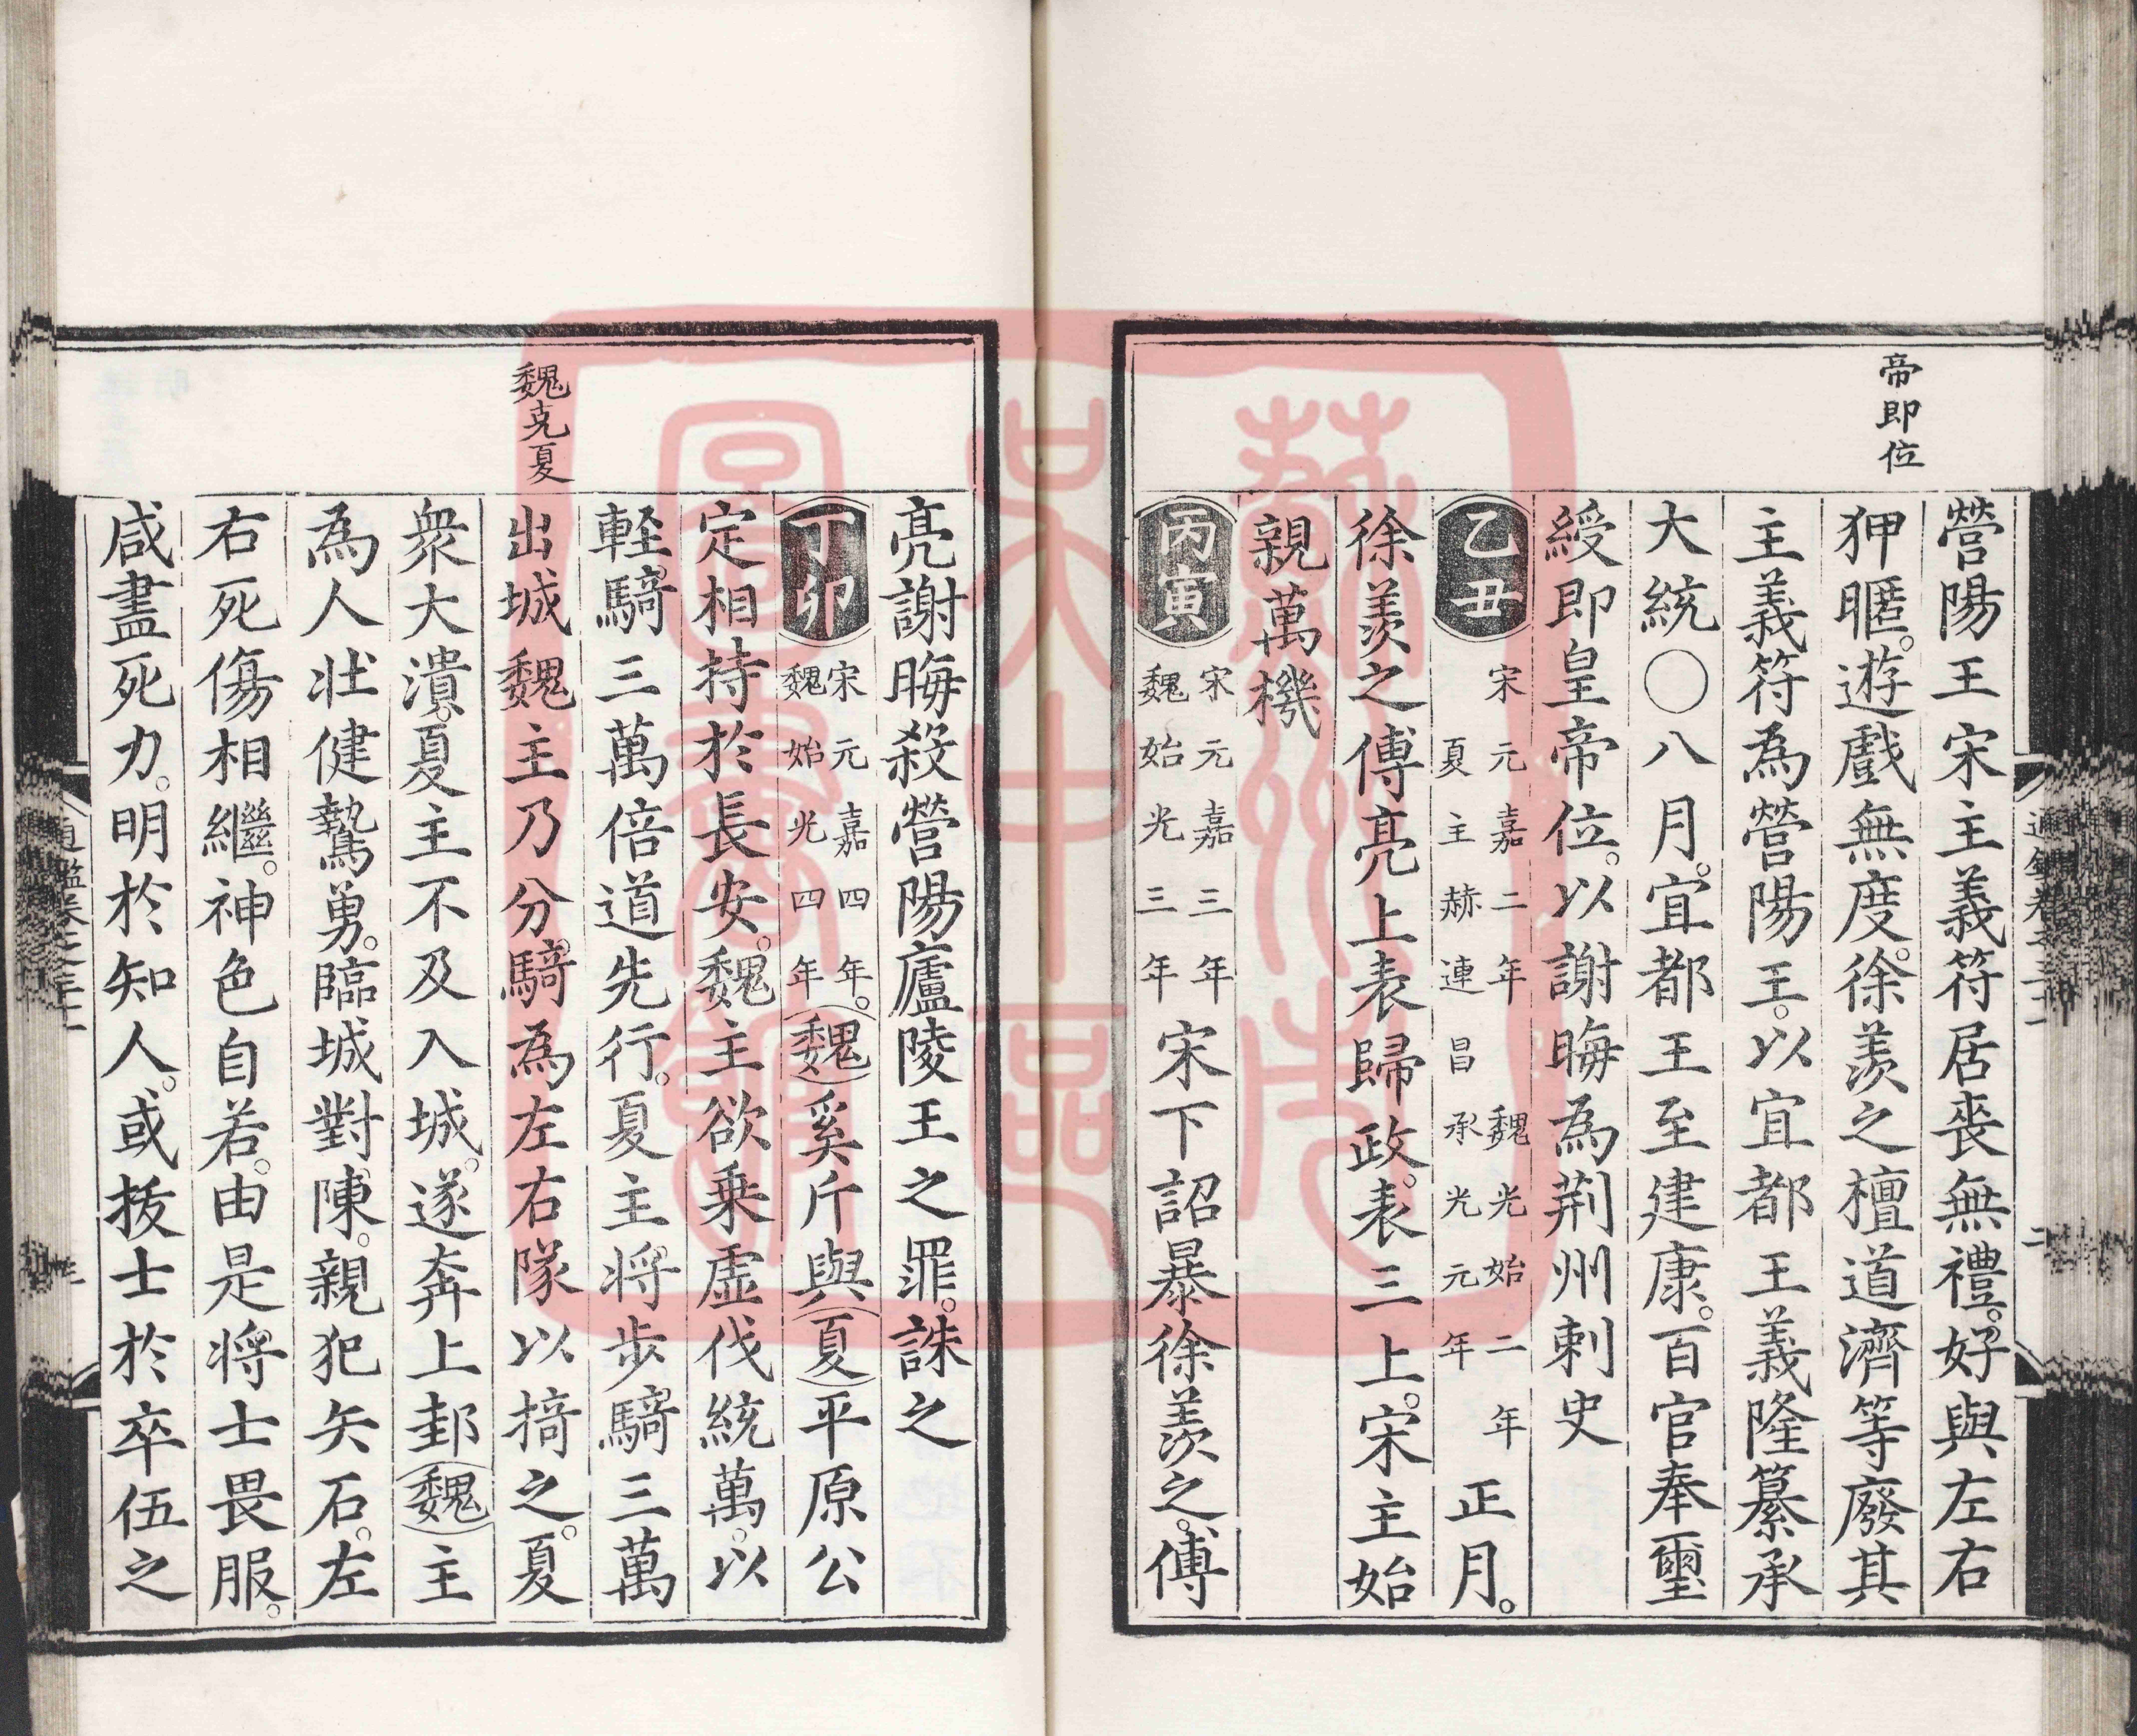 帝即位
營陽王宋主義符居喪無禮。好與左右
狎暱。遊戲無度。徐羨之檀道濟等廢其
主義符為營陽王。以宜都王義隆纂承
大統〇八月。宜都王至建康。百官奉璽
綬即皇帝位。以謝晦為荆州刺史
乙丑 宋元嘉二年 魏光始二年 夏主赫連昌承光元年 正月。
徐羨之傅亮上表歸政。表三上。宋主始
親萬機
丙寅 宋元嘉三年 魏始光三年 宋下詔暴徐羨之。傅
魏克夏
亮謝晦殺營陽廬陵王之罪。誅之
丁卯 宋元嘉四年。魏始光四年 (魏)奚斤與(夏)平原公
定相持於長安。魏主欲乗虛伐統萬。以
軽騎三萬倍道先行。夏主将步騎三萬
出城魏主乃分騎為左右隊以掎之。夏
衆大潰。夏主不及入城。遂奔上邽(魏)主
為人壮健鷙勇。臨城對陳。親犯矢石。左
右死傷相繼。神色自若。由是将士畏服。
咸盡死力。明於知人。或拔士於卒伍之